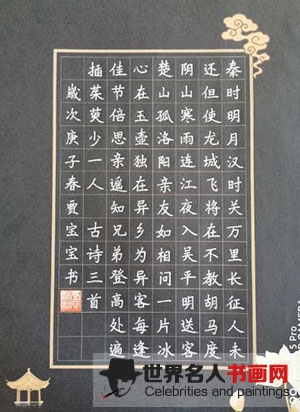 秦时明月汉时关万里长征人未
还但使龙城飞将在不教胡马度
阴山寒雨连江夜入吴平明送客
楚山孤洛阳亲友如相问一片冰
心在玉壶独在异乡为异客每逢
佳节倍思亲遥知兄弟登高处遍
插茱萸少一人 古诗三首
嵗次庚子春贾宝宝书
5 Pro
世界名人书画网
Celebrities and paintings